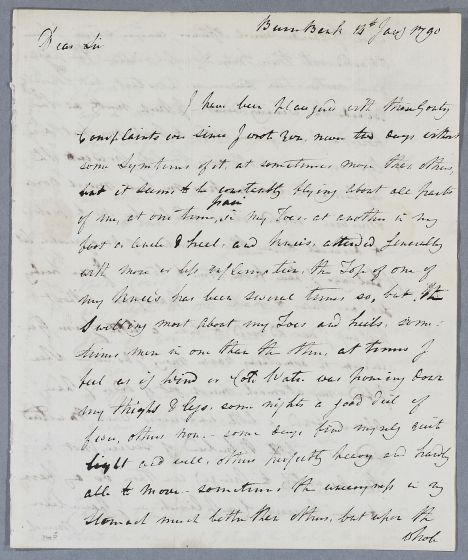 Burn Bank 13th Jany 1790
Dear Sir
I have been plagued with these Gouty
Complaints ever since I wrote you, never two days without
some symptoms of it, at sometimes more than others,
but it seems to be constantly flying about all parts
of me, at one time pain in my Toes, at another in my
foot or ancle & heel, and knees, attended Generally
with more or less inflamation, the Top of one of
my knees has been several times so, but the
Swelling most about my Toes and heels, some-
times more in one than the other, at times I
feel as if Wind or Cold Water was pouring down
my thighs & legs, some nights a good deal of
fever, others non.- some days find myself quit
light and well, others perfectly heavy and hardly
able to move - sometimes the uneasyness in my
stomach much better than others, but upon the
whole